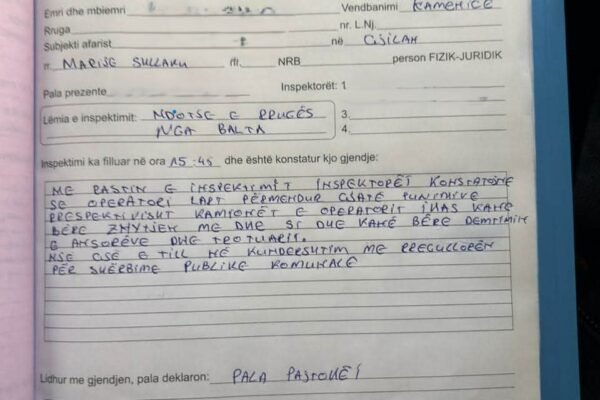 Emri dhe mbiemri Vendbanimi KAMENICË
Rruga nr. L.Nj.
Subjekti afarist në GJILAN
rr. MARIJE SHLLAKU nr. NRB person FIZIK-JURIDIK
Pala prezente Inspektorët: 1
Lëmia e inspektimit: NDOTJE E RRUGËS 3.
NGA BALTA 4.
Inspektimi ka filluar në ora 15:45 dhe është konstatur kjo gjendje:
ME RASTIN E INSPEKTIMIT INSPEKTORËT KONSTATOJNË
SE OPERATORI LART PËRMENDUR GJATË PUNIMEVE
PRESPEKTIVISHT KAMIONËT E OPERATORIT KANË
BËRË ME DHE SI DHE KANË BËRË DEMTIMIN
E ANSOREVE DHE TROTUARIT.
NJË GJË E TILL NË KUNDERSHTIM ME RREGULLOREN
PËR SHËRBIME PUBLIKE KOMUNALE
Lidhur me gjendjen, pala deklaron: PALA